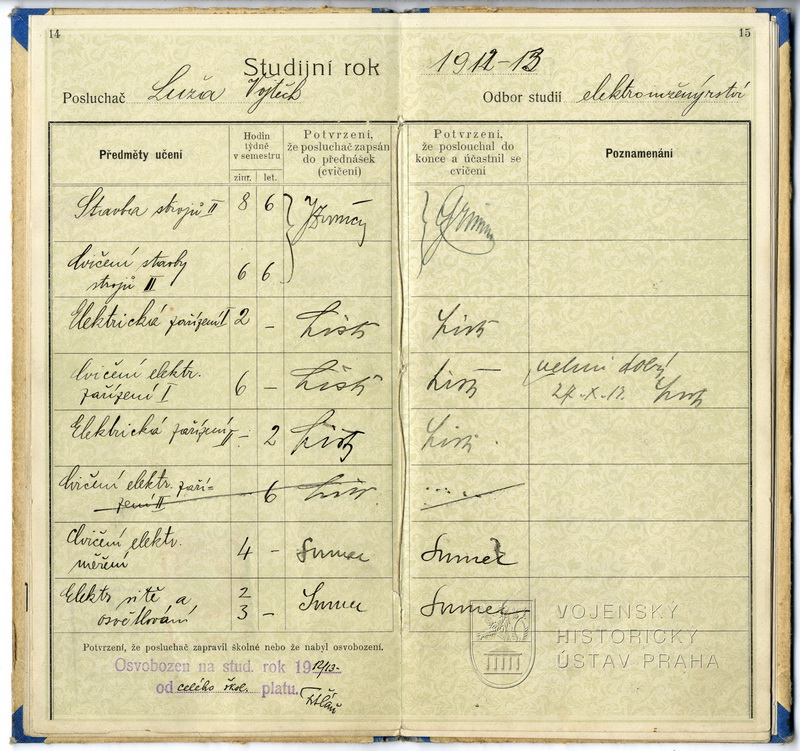 14
15
Studijní rok 1912-13
Posluchač Luža Vojtěch
Odbor studií elektroinženýrství
Předměty učení
Hodin
týdně
v semestru
zim. let.
Potvrzení,
že posluchač zapsán
do přednášek
(cvičení)
Potvrzení,
že poslouchal do
konce a účastnil se
cvičení
Poznamenání
Stavba strojů II 8 6
Cvičení stavby
strojů II 6 6
Elektrická zařízení I 2 - List List
Cvičení elektr.
zařízení I 6 - List List velmi dobrý
List
Elektrická zařízení
II - 2 List List
Cvičení elektr. zaří-
zení II 6 List
Cvičení elektr.
měření 4 - Šumec Šumec
Elektr. sítě a 2
osvětlování 3 - Šumec Šumec
Potvrzení, že posluchač zapravil školné nebo že nabyl osvobození.
Osvobozen na stud. rok 1912/13-
od celého škol. platu.
VOJENSKÝ
HISTORICKÝ
ÚSTAV PRAHA